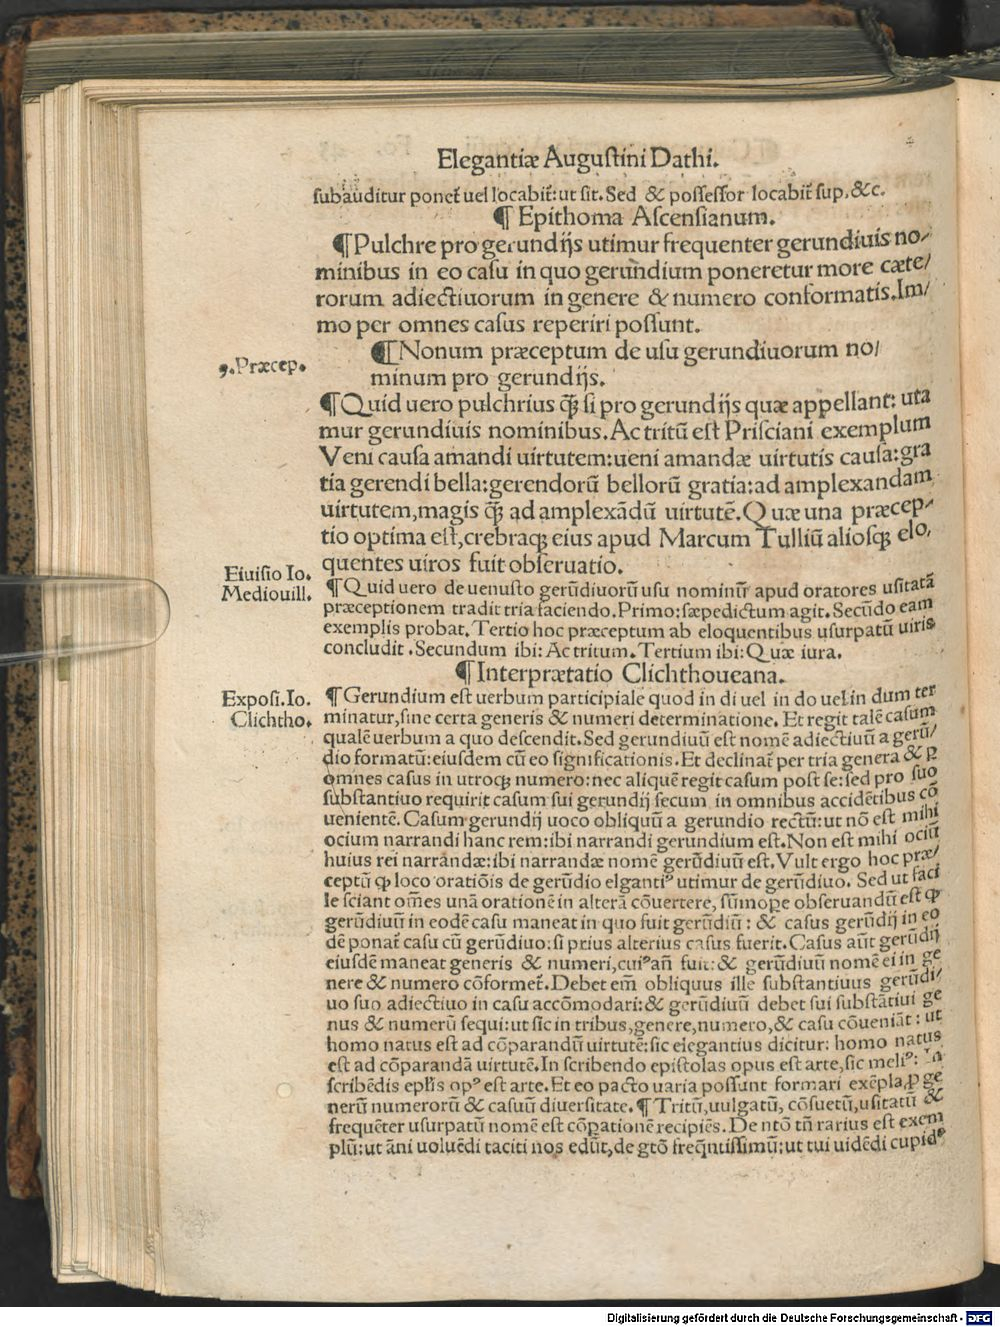 Elegantiæ Augustini Dathi.
subauditur ponet̃ uel locabit̃: ut sit. Sed & possessor locabit̃ sup. &c.
¶ Epithoma Ascensianum.
¶ Pulchre pro gerundijs utimur frequenter gerundiuis no/
minibus in eo casu in quo gerundium poneretur more cæte/
rorum adiectiuorum in genere & numero conformatis. Im/
mo per omnes casus reperiri possunt.
9. Præcep.
¶ Nonum præceptum de usu gerundiuorum no/
minum pro gerundijs.
¶ Quid uero pulchrius q̃ȝ si pro gerundijs quæ appellant: uta
mur gerundiuis nominibus. Ac tritũ est Prisciani exemplum
Veni causa amandi uirtutem: ueni amandæ uirtutis causa: gra
tia gerendi bella: gerendorũ bellorũ gratia: ad amplexandam
uirtutem, magis q̃ȝ ad amplexãdũ uirtutẽ. Quæ una præcep/
tio optima est, crebraqȝ eius apud Marcum Tulliũ aliosqȝ elo/
quentes uiros fuit obseruatio.
Eiuisio Io.
Mediouill.
¶ Quid uero de uenusto gerũdiuorũ usu nominũ apud oratores usitatã
præceptionem tradit tria faciendo. Primo: sæpedictum agit. Secũdo eam
exemplis probat. Tertio hoc præceptum ab eloquentibus usurpatũ uiris
concludit. Secundum ibi: Ac tritum. Tertium ibi: Quæ iura.
¶ Interprætatio Clichthoueana.
Exposi. Io.
Clichtho.
¶ Gerundium est uerbum participiale quod in di uel in do uel in dum ter
minatur, sine certa generis & numeri determinatione. Et regit talẽ casum
qualẽ uerbum a quo descendit. Sed gerundiuũ est nomẽ adiectiuũ a gerũ/
dio formatũ: eiusdem cũ eo significationis. Et declinat̃ per tria genera & ꝑ
omnes casus in utroqȝ numero: nec aliquẽ regit casum post se: sed pro suo
substantiuo requirit casum sui gerundij secum in omnibus accidẽtibus cõ
uenientẽ. Casum gerundij uoco obliquũ a gerundio rectũ: ut nõ est mihi
ocium narrandi hanc rem: ibi narrandi gerundium est. Non est mihi ociũ
huius rei narrandæ: ibi narrandæ nomẽ gerũdiuũ est. Vult ergo hoc præ/
ceptũ ꝙ loco oratiõis de gerũdio elgantiꝰ utimur de gerũdiuo. Sed ut faci
le sciant om̃es unã orationẽ in alterã cõuertere, sũmope obseruandũ est ꝙ
gerũdiuũ in eodẽ casu maneat in quo fuit gerũdiũ: & casus gerũdij in eo
dẽ ponat̃ casu cũ gerũdiuo: si prius alterius casus fuerit. Casus aũt gerũdij
eiusdẽ maneat generis & numeri, cuiꝰ añ fuit: & gerũdiuũ nomẽ ei in ge
nere & numero cõformet̃. Debet em̃ obliquus ille substantiuus gerũdi/
uo suo adiectiuo in casu accõmodari: & gerũdiuũ debet sui substãtiui ge
nus & numerũ sequi: ut sic in tribus, genere, numero, & casu cõueniãt: ut
homo natus est ad cõparandũ uirtutẽ: sic elegantius dicitur: homo natus
est ad cõparandã uirtutẽ. In scribendo epistolas opus est arte, sic meliꝰ: In
scribẽdis epĩis opꝰ est arte. Et eo pacto uaria possunt formari exẽpla, ꝓ ge
nerũ numerorũ & casuũ diuersitate. ¶ Tritũ, uulgatũ, cõsuetũ, usitatũ &
frequẽter usurpatũ nomẽ est cõpationẽ recipiẽs. De ntõ tñ rarius est exem
plũ: ut ãni uoluẽdi taciti nos edũt, de gtõ freq̃ntissimũ: ut tui uidẽdi cupidꝰ
Digitalisierung gefördert durch die Deutsche Forschungsgemeinschaft - DFG